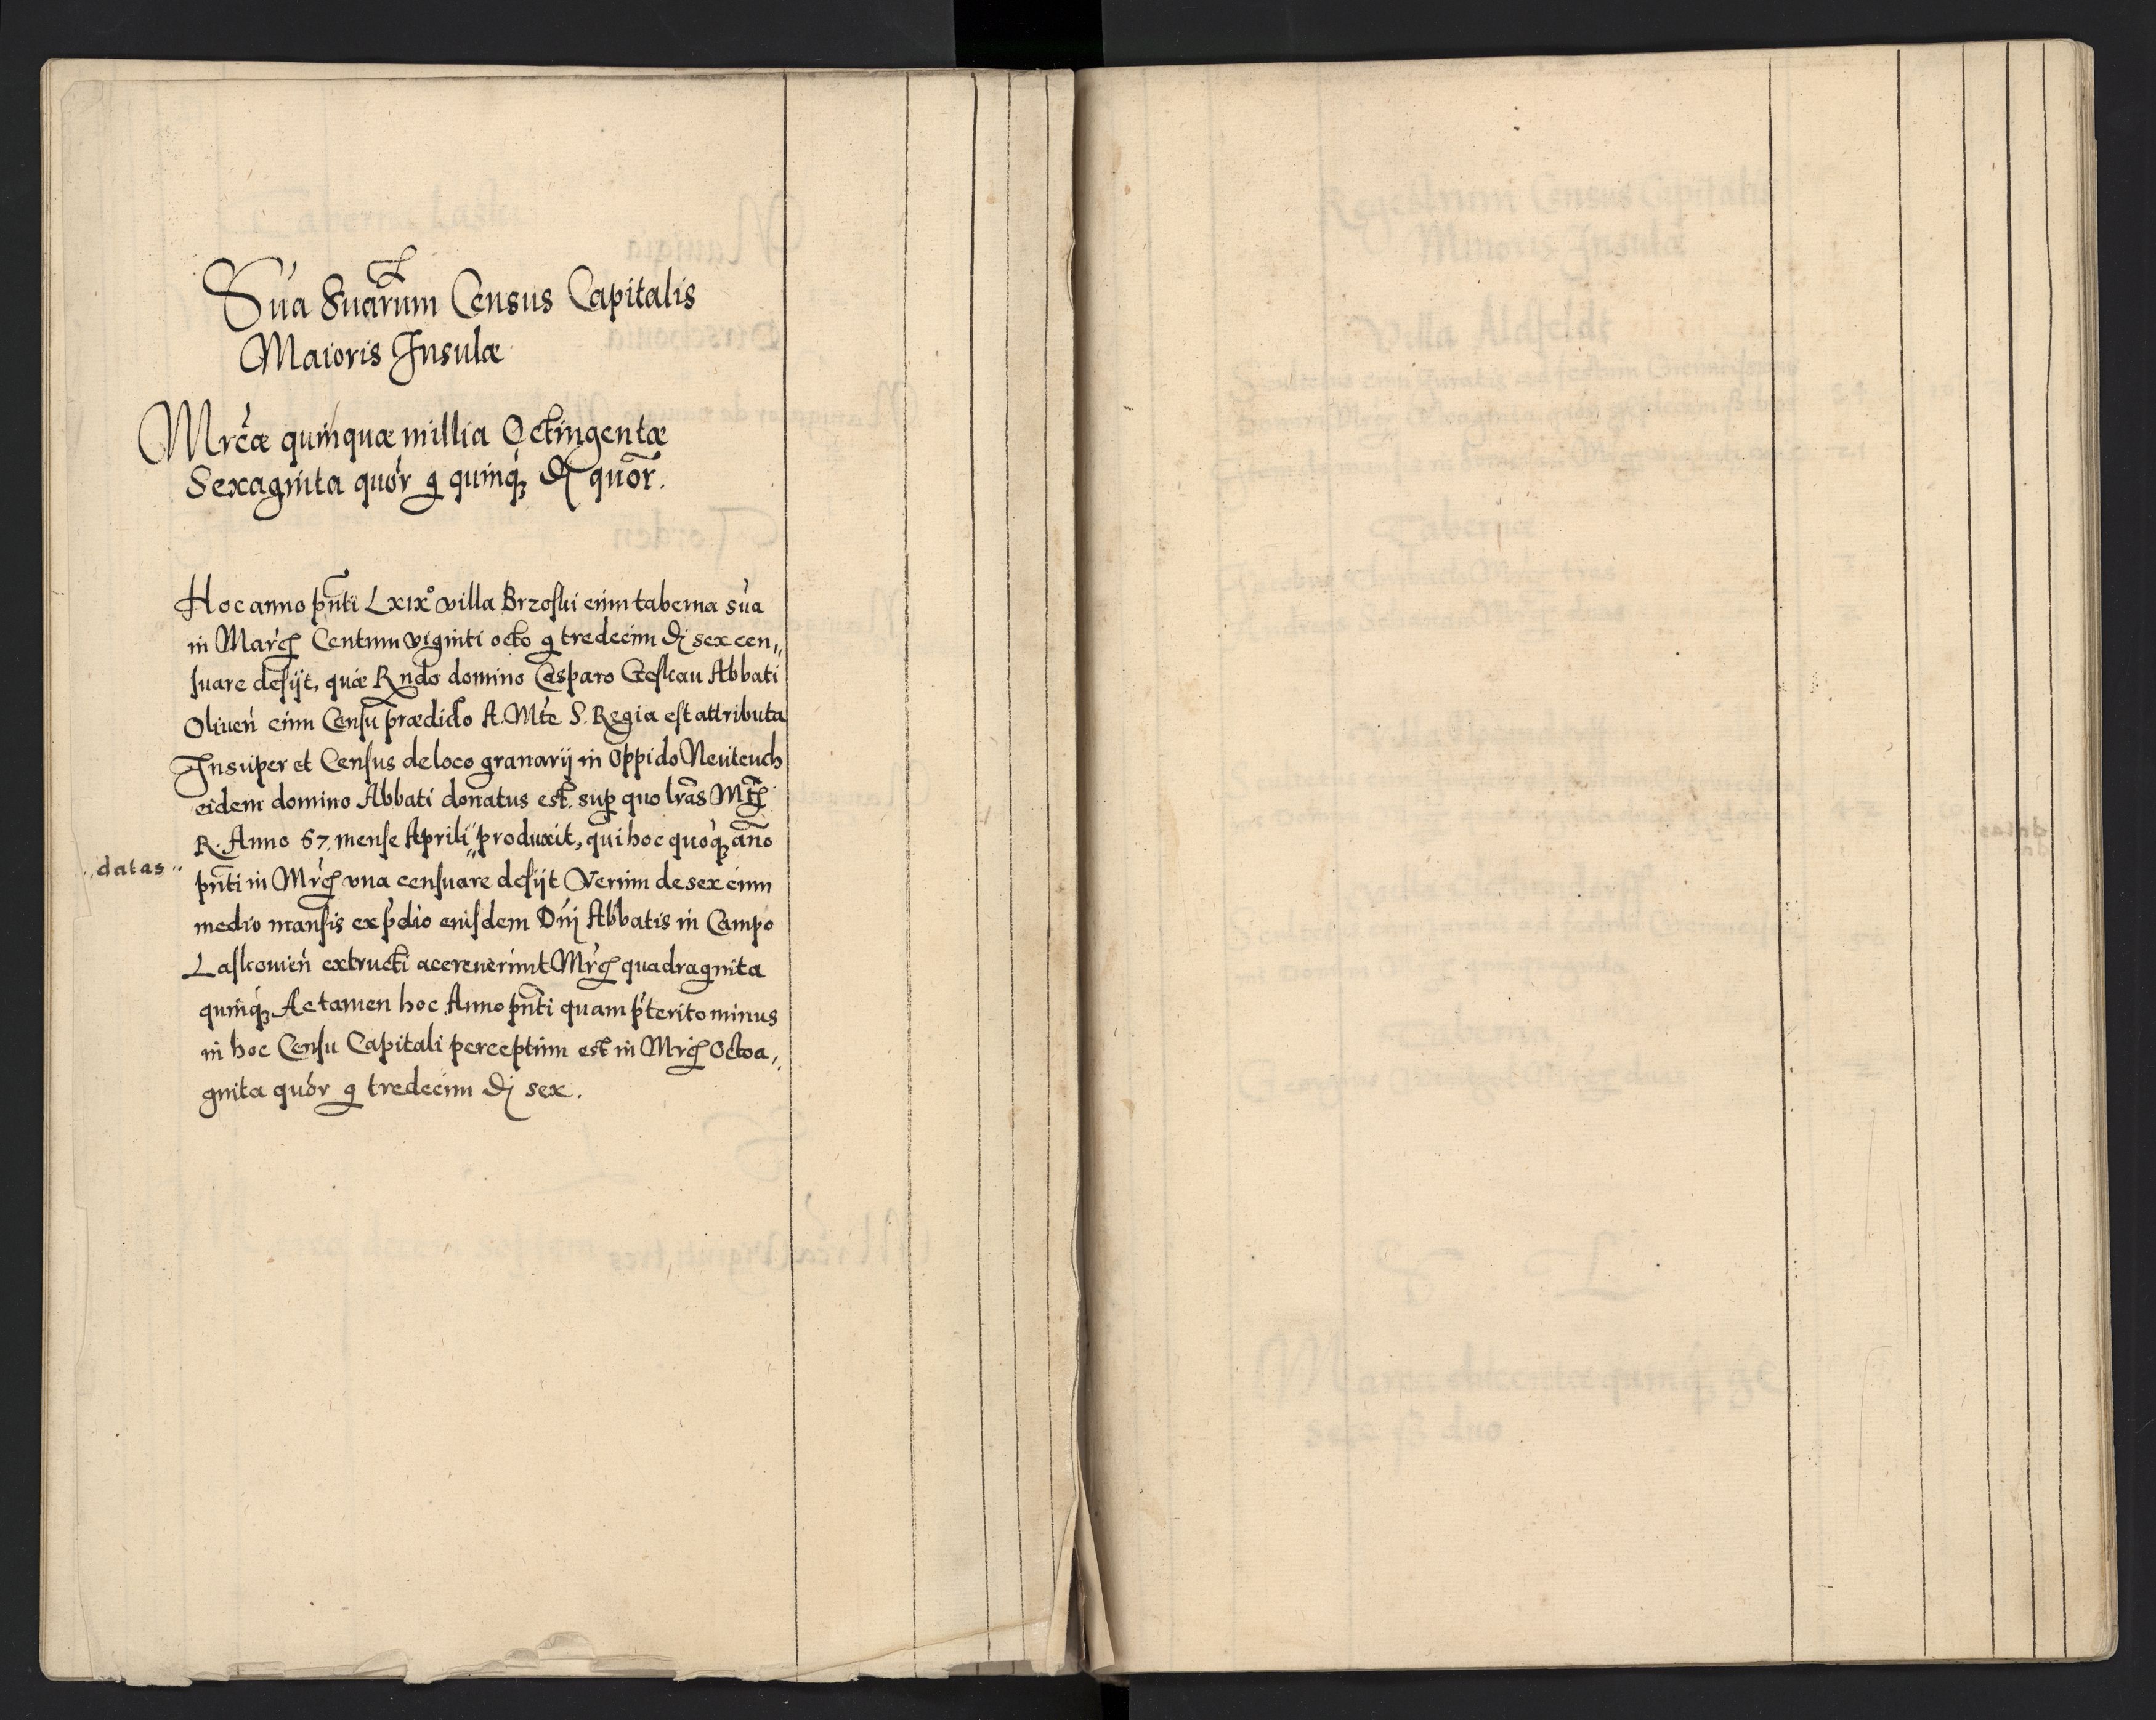 Su̇a Suarum Census Capitalis
Maioris Insulæ
Mrcæ quinquæ millia Octingentæ
Sexaginta quor g quinq₃ ₰ quor.
Hoc anno pñti Lxix° villa Brzoski cum taberna sua
in March Centum viginti octo g tredecim ₰ sex cen„
suare desijt, quæ Rndo domino Casparo Geskau Abbati
Oliueñ cum Censu prædicto A. Mte S. Regia est attributa
Insuper et Census de loco granarij in Oppido Neuteuch
eidem domino Abbati donatus est. sup quo lras Mtis
R. Anno 67 mense Aprili„ produxit, qui hoc quoq₃ año
„datas„
pñti in Mrc̃ vna censuare desijt Verum de sex cum
medio mansis ex pdio eiusdem Dnj Abbatis in Campo
Laskouień extructi accreuerunt Mrc̃ quadraginta
quinq₃ Ac tamen hoc Anno pñti quam pterito minus
in hoc Censu Capitali perceptum est in Mrc̃ Octoa„
ginta quor g tredecim ₰ sex.